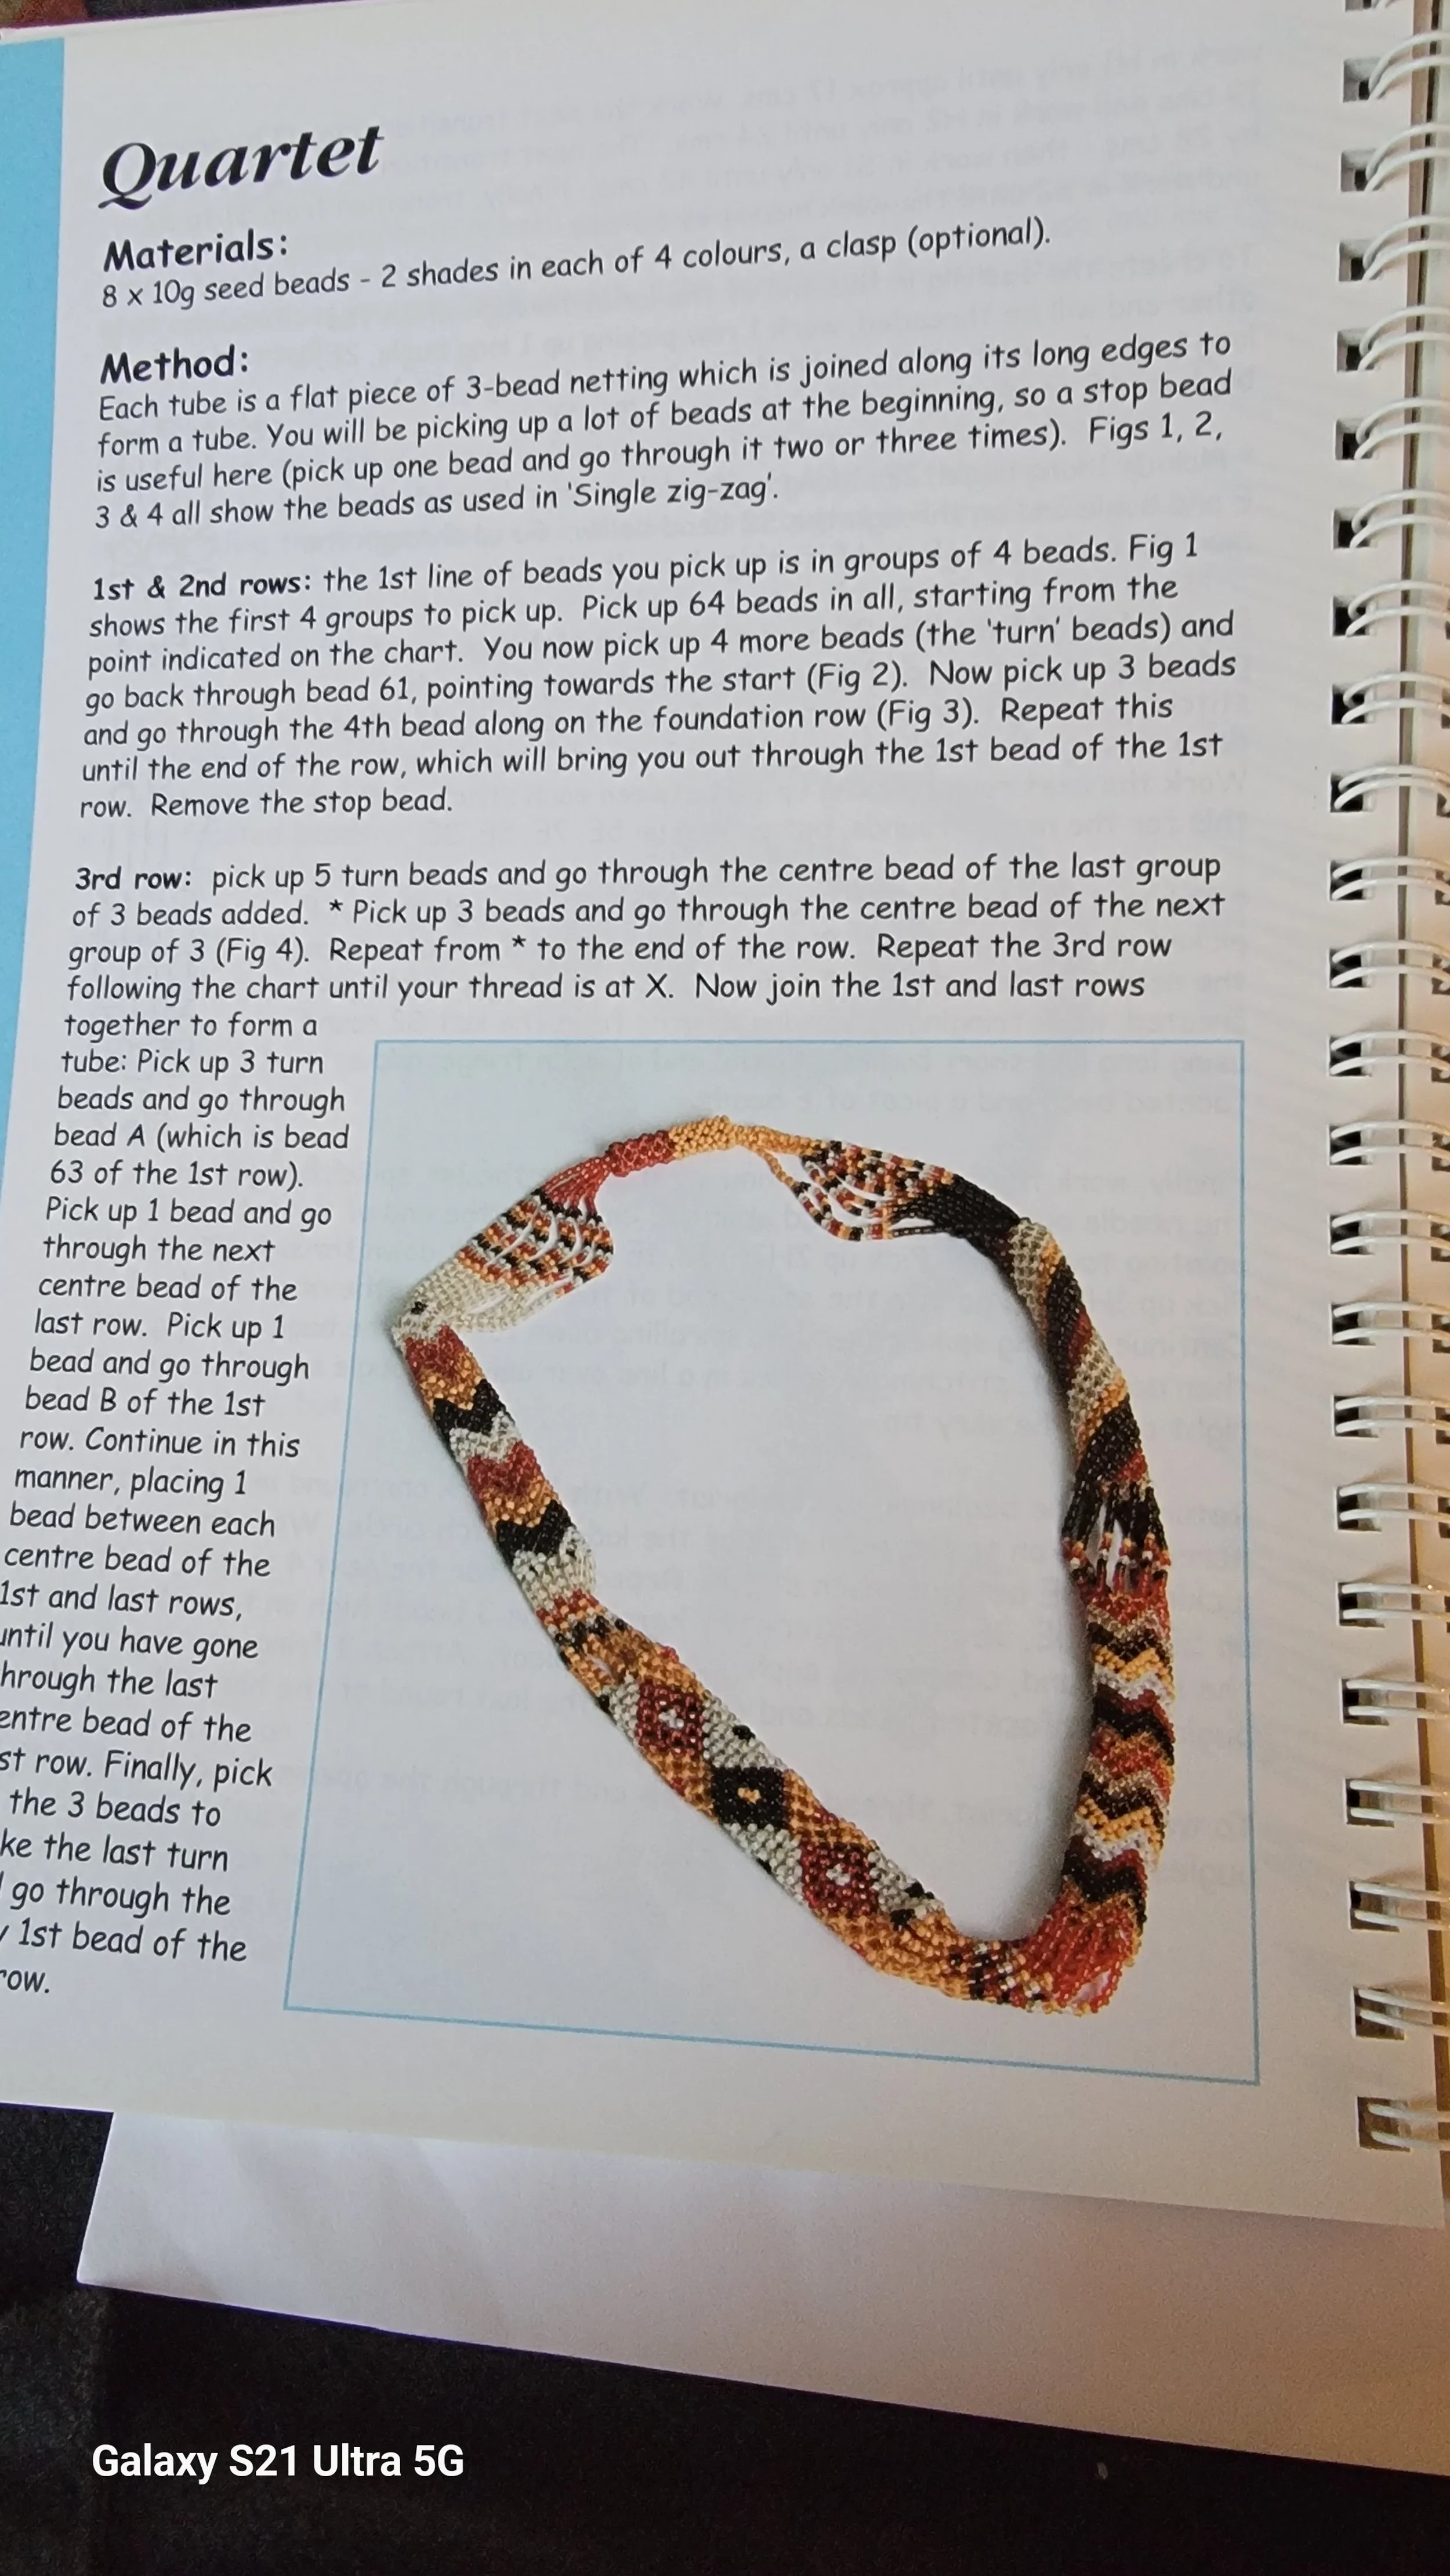 Quartet
Materials:
8 x 10g seed beads - 2 shades in each of 4 colours, a clasp (optional).
Method:
Each tube is a flat piece of 3-bead netting which is joined along its long edges to
form a tube. You will be picking up a lot of beads at the beginning, so a stop bead
is useful here (pick up one bead and go through it two or three times). Figs 1, 2,
3 & 4 all show the beads as used in 'Single zig-zag'.
1st & 2nd rows: the 1st line of beads you pick up is in groups of 4 beads. Fig 1
shows the first 4 groups to pick up. Pick up 64 beads in all, starting from the
point indicated on the chart. You now pick up 4 more beads (the 'turn' beads) and
go back through bead 61, pointing towards the start (Fig 2). Now pick up 3 beads
and go through the 4th bead along on the foundation row (Fig 3). Repeat this
until the end of the row, which will bring you out through the 1st bead of the 1st
row. Remove the stop bead.
3rd row: pick up 5 turn beads and go through the centre bead of the last group
of 3 beads added. * Pick up 3 beads and go through the centre bead of the next
group of 3 (Fig 4). Repeat from * to the end of the row. Repeat the 3rd row
following the chart until your thread is at X. Now join the 1st and last rows
together to form a
tube: Pick up 3 turn
beads and go through
bead A (which is bead
63 of the 1st row).
Pick up 1 bead and go
through the next
centre bead of the
last row. Pick up 1
bead and go through
bead B of the 1st
row. Continue in this
manner, placing 1
bead between each
centre bead of the
1st and last rows,
until you have gone
hrough the last
entre bead of the
st row. Finally, pick
the 3 beads to
ke the last turn
go through the
1st bead of the
row.
Galaxy S21 Ultra 5G